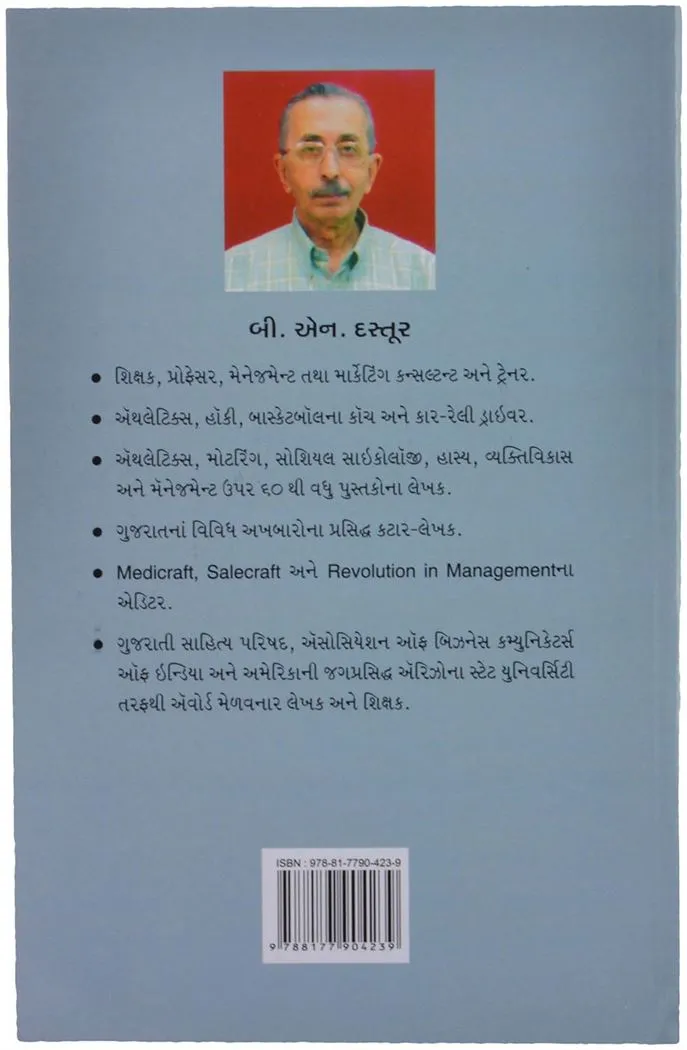 બી. એન. દસ્તૂર
• શિક્ષક, પ્રોફેસર, મેનેજમેન્ટ તથા માર્કેટિંગ કન્સલ્ટન્ટ અને ટ્રેનર.
• ઍથલેટિક્સ, હૉકી, બાસ્કેટબૉલના કૉચ અને કાર-રેલી ડ્રાઇવર.
• ઍથલેટિક્સ, મોટરિંગ, સોશિયલ સાઇકોલૉજી, હાસ્ય, વ્યક્તિવિકાસ
અને મૅનેજમેન્ટ ઉપર ૬૦ થી વધુ પુસ્તકોના લેખક.
• ગુજરાતનાં વિવિધ અખબારોના પ્રસિદ્ધ કટાર-લેખક.
• Medicraft, Salecraft અને Revolution in Managementના
એડિટર.
• ગુજરાતી સાહિત્ય પરિષદ, ઍસોસિયેશન ઑફ બિઝનેસ કમ્યુનિકેટર્સ
ઑફ ઇન્ડિયા અને અમેરિકાની જગપ્રસિદ્ધ ઍરિઝોના સ્ટેટ યુનિવર્સિટી
તરફથી ઍવોર્ડ મેળવનાર લેખક અને શિક્ષક.
ISBN : 978-81-7790-423-9
9 788177 904239